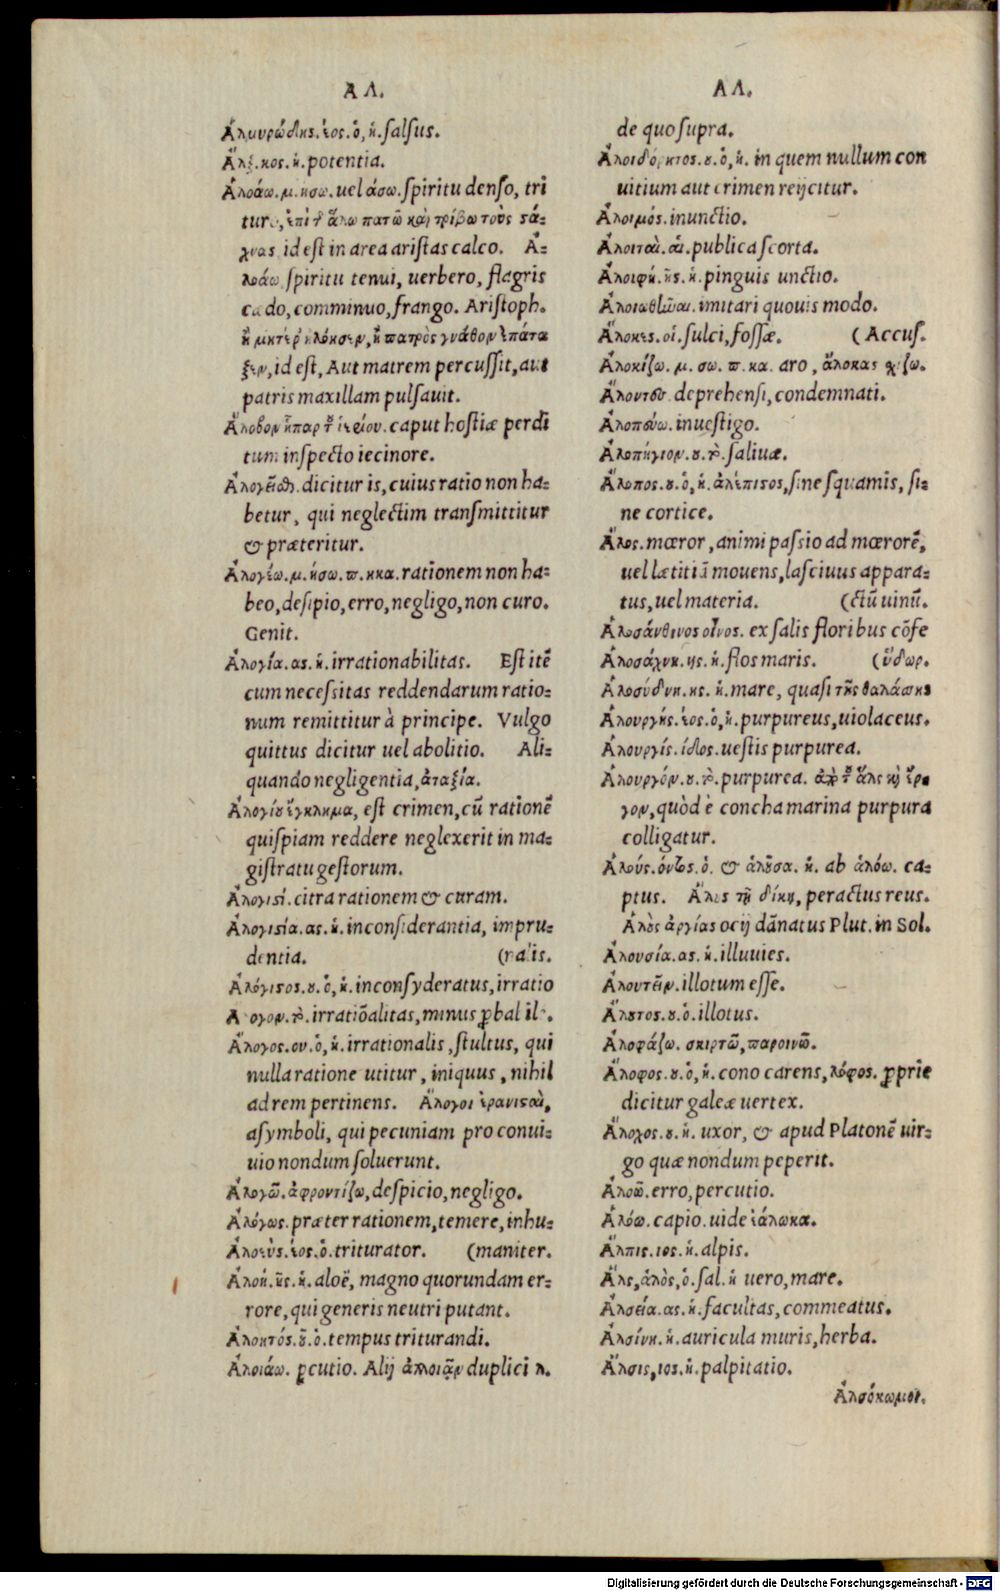 ΑΛ.
Ἁλμυρώδης.έος.ὁ,ἡ.salsus.
Ἄλξ.κος.ἡ.potentia.
Ἁλοάω.μ.ήσω.uel άσω.spiritu denso, tri
turo, ἐπὶ τ ἅλω πατῶ καὶ τρίβω τοὺς στά-
χυας id est in area aristas calco. Ἀ-
λοάω spiritu tenui, uerbero, flagris
cædo, comminuo, frango. Aristoph.
ἢ μητέρ' ἠλόησεν, ἢ πατρὸς γνάθον ἐπάτα
ξεν, id est, Aut matrem percussit, aut
patris maxillam pulsauit.
Ἄλοβον ἧπαρ τ ἱερείου. caput hostiæ perdi
tum inspecto iecinore.
Ἀλογεῖσθ. dicitur is, cuius ratio non ha-
betur, qui neglectim transmittitur
& præteritur.
Ἀλογέω.μ.ήσω.π.ηκα. rationem non ha-
beo, desipio, erro, negligo, non curo.
Genit.
Ἀλογία.ας.ἡ. irrationabilitas. Est itē
cum necessitas reddendarum ratio-
num remittitur à principe. Vulgo
quittus dicitur uel abolitio. Ali-
quando negligentia, ἀταξία.
Ἀλογίου ἔγκλημα, est crimen, cū rationē
quispiam reddere neglexerit in ma-
gistratu gestorum.
Ἀλογιστί. citra rationem & curam.
Ἀλογιστία.ας.ἡ. inconsiderantia, impru-
dentia. (nalis.
Ἀλόγιστος.ου.ὁ,ἡ. inconsyderatus, irratio
Ἄλογον.τὸ. irratiōalitas, minus ꝓbabil
Ἄλογος.ου.ὁ,ἡ. irrationalis, stultus, qui
nulla ratione utitur, iniquus, nihil
ad rem pertinens. Ἄλογοι ἐρανισταὶ,
asymboli, qui pecuniam pro conui-
uio nondum soluerunt.
Ἀλογῶ. ἀφροντίζω, despicio, negligo.
Ἀλόγως. præter rationem, temere, inhu-
Ἀλοεὺς.έος.ὁ. triturator. (maniter.
Ἀλοή.ῆς.ἡ. aloë, magno quorundam er-
rore, qui generis neutri putant.
Ἀλοητός.οῦ.ὁ. tempus triturandi.
Ἀλοιάω. ꝑcutio. Alij ἀλλοιᾶν duplici λ.
ΑΛ.
de quo supra.
Ἀλοιδόρητος.ου.ὁ,ἡ. in quem nullum con
uitium aut crimen reijcitur.
Ἀλοιμός. inunctio.
Ἀλοιταὶ.αἱ. publica scorta.
Ἀλοιφή.ῆς.ἡ. pinguis unctio.
imitari quouis modo.
Ἄλοκες.οἱ. sulci, fossæ. (Accus.
Ἀλοκίζω.μ.σω.π.κα. aro, ἄλοκας χίζω.
deprehensi, condemnati.
inuestigo.
Ἀλοπήγιον.ου.τὸ. saliuæ.
Ἄλοπος.ου.ὁ,ἡ. ἀλέπιστος, sine squamis, si-
ne cortice.
Ἄλος. mœror, animi passio ad mœrorē,
uel lætitiā mouens, lasciuus appara-
tus, uel materia. (ctū uinū.
Ἁλοσάνθινος οἶνος. ex salis floribus cōfe
Ἁλοσάχνη.ης.ἡ. flos maris. (ὕδωρ.
Ἁλοσύδνη.ης.ἡ. mare, quasi τῆς θαλάσσης
Ἁλουργής.έος.ὁ,ἡ. purpureus, uiolaceus.
Ἁλουργίς.ίδος. uestis purpurea.
Ἁλουργόν.ου.τὸ. purpurea. ἀπὸ τ ἅλς καὶ ἔρ-
γον, quòd è concha marina purpura
colligatur.
Ἁλούς.όντος.ὁ. & ἁλοῦσα.ἡ. ab ἁλόω. ca-
ptus. Ἁλοὺς τῇ δίκῃ, peractus reus.
Ἁλοὺς ἀργίας ocij dānatus Plut. in Sol.
Ἀλουσία.ας.ἡ. illuuies.
Ἀλουτεῖν. illotum esse.
Ἄλουτος.ου.ὁ. illotus.
Ἀλοφάζω. σκιρτῶ, παροινῶ.
Ἄλοφος.ου.ὁ,ἡ. cono carens, λόφος. ꝓprie
dicitur galeæ uertex.
Ἄλοχος.ου.ἡ. uxor, & apud Platonē uir-
go quæ nondum peperit.
Ἀλοῶ. erro, percutio.
Ἁλόω. capio. uide ἑάλωκα.
Ἄλπις.ιος.ἡ. alpis.
Ἅλς, ἁλὸς, ὁ. sal. ἡ uero, mare.
Ἀλσεία.ας.ἡ. facultas, commeatus.
Ἀλσίνη.ἡ. auricula muris, herba.
Ἅλσις, ιος.ἡ. palpitatio.
Ἀλσόκωμοι.
Digitalisierung gefördert durch die Deutsche Forschungsgemeinschaft - DFG